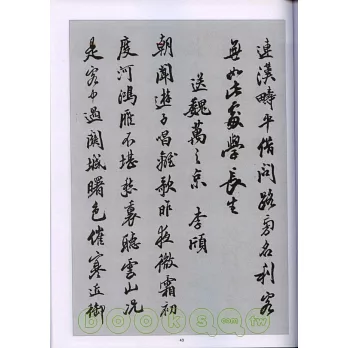 連漢畤平借問路旁名利客
無如此處學長生
送魏萬之京 李頎
朝聞遊子唱離歌昨夜微霜初
度河鴻雁不堪愁裏聽雲山況
是客中過關城曙色催寒近御
BOOKS.com.tw